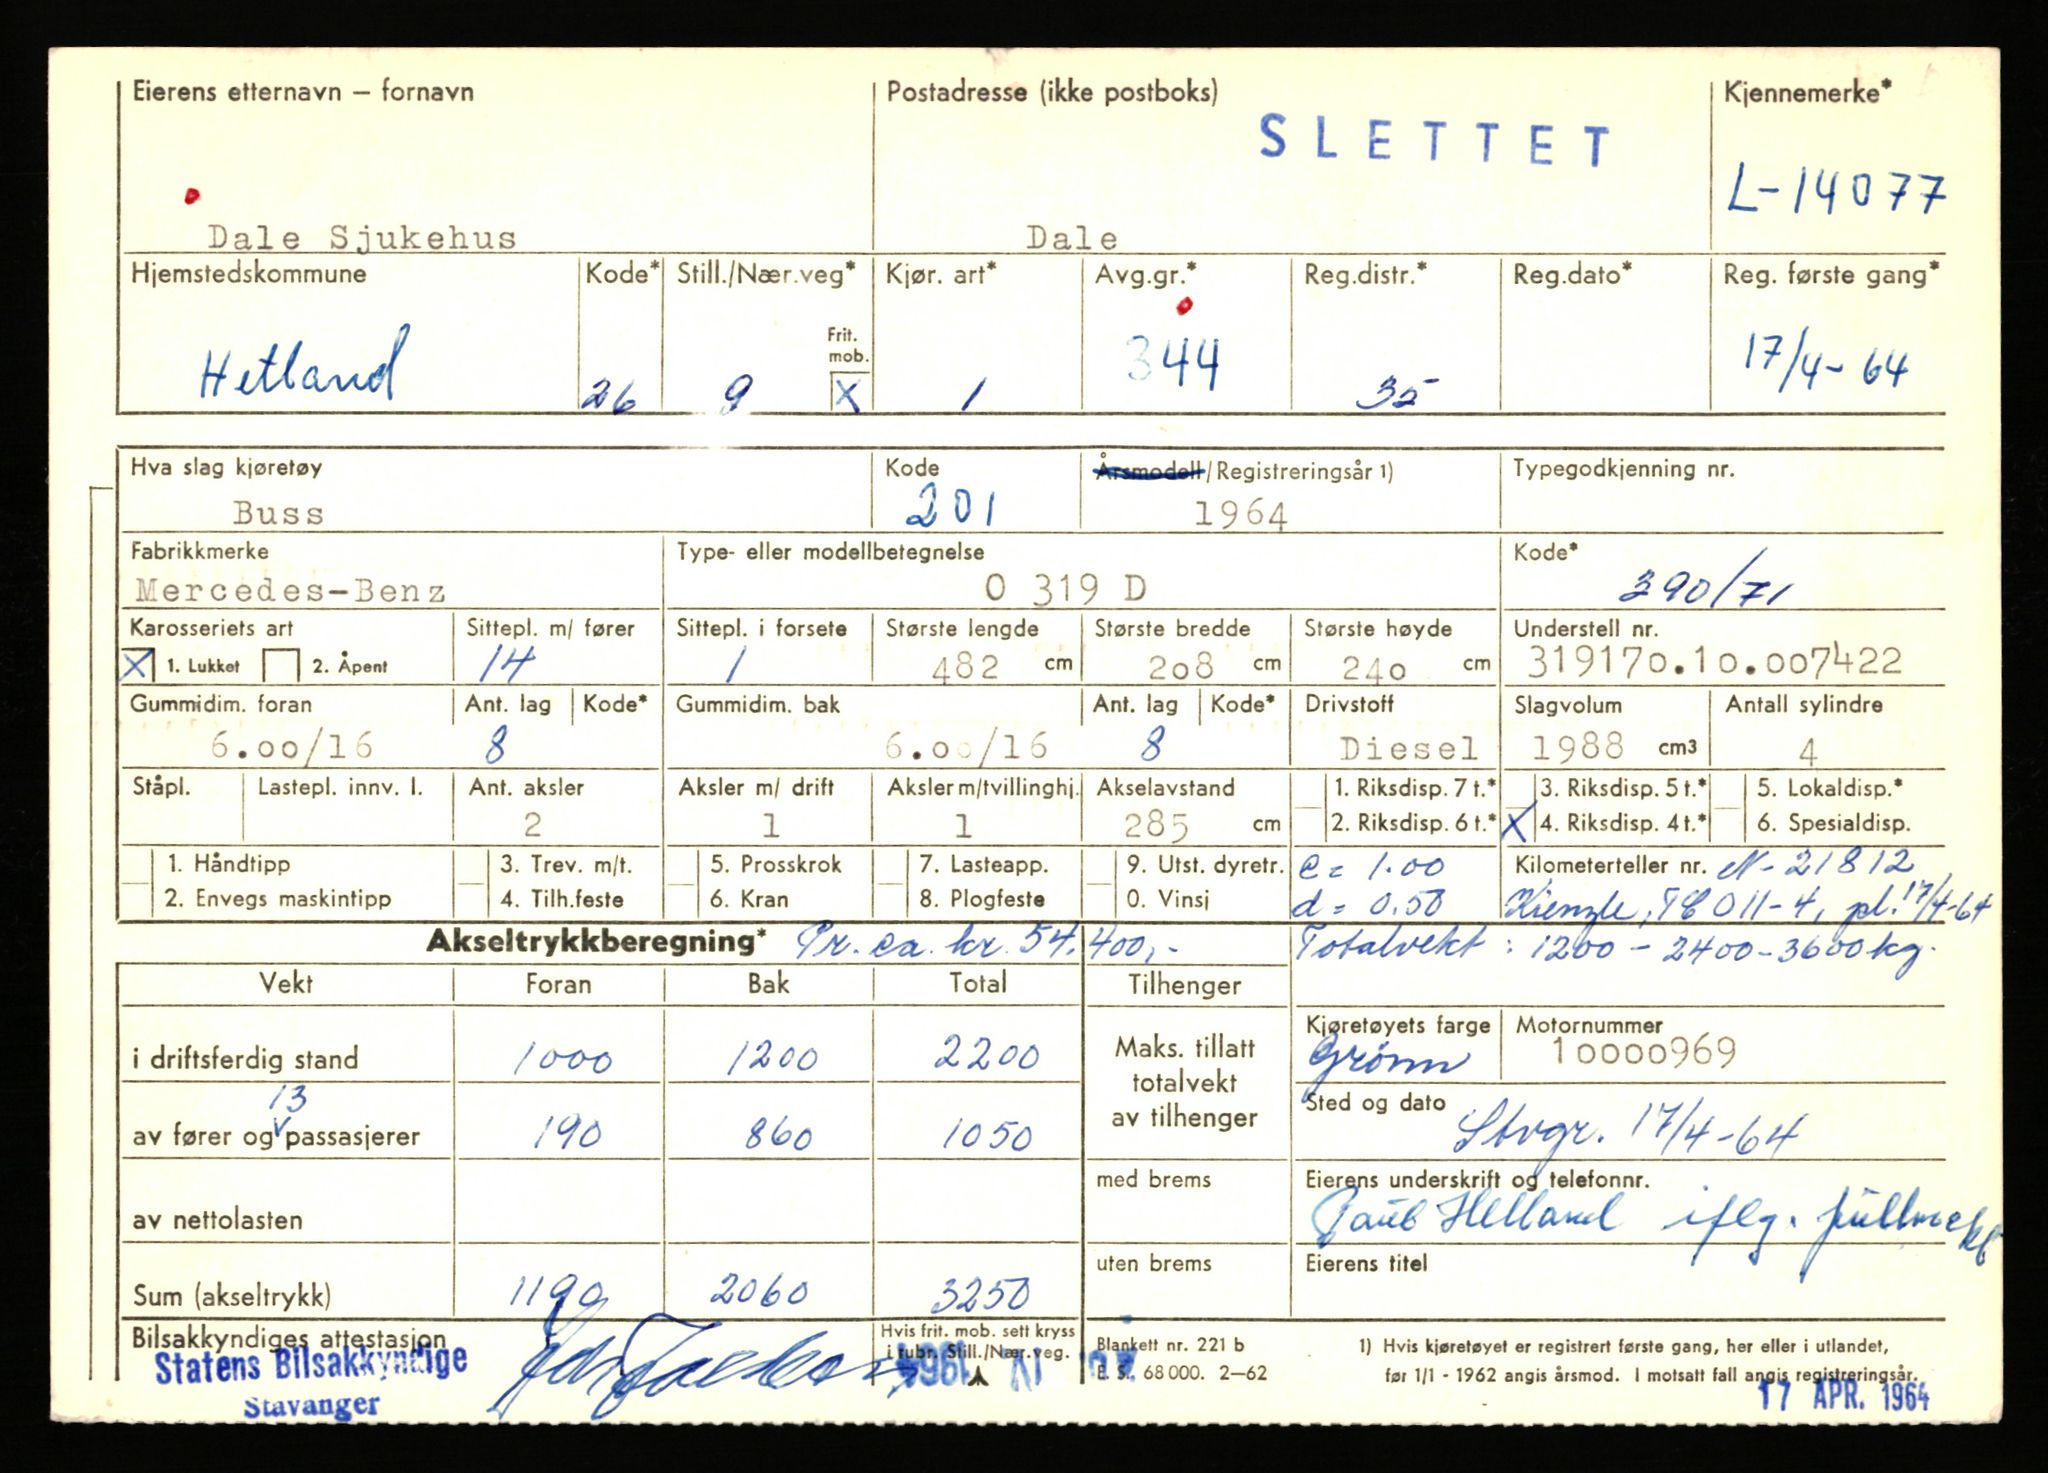 Eierens etternavn – fornavn Postadresse (ikke postboks) Kjennemerke*
SLETTET
L-14077
Dale Sjukehus Dale
Hjemstedskommune Kode* Still./Nær.veg* Kjør. art* Avg.gr.* Reg.distr.* Reg.dato* Reg. første gang*
Frit. mob.
Hetland 26 9 X 1 344 35 17/4-64
Hva slag kjøretøy Kode Årsmodell/Registreringsår 1) Typegodkjenning nr.
Buss 201 1964
Fabrikkmerke Type- eller modellbetegnelse Kode*
Mercedes-Benz O 319 D 390/71
Karosseriets art Sittepl. m/ fører Sittepl. i forsete Største lengde Største bredde Største høyde Understell nr.
X 1. Lukket 2. Åpent 14 1 482 cm 208 cm 240 cm 319170.10.007422
Gummidim. foran Ant. lag Kode* Gummidim. bak Ant. lag Kode* Drivstoff Slagvolum Antall sylindre
6.00/16 8 6.00/16 8 Diesel 1988 cm3 4
Ståpl. Lastepl. innv. l. Ant. aksler Aksler m/ drift Aksler m/tvillinghj. Akselavstand 1. Riksdisp. 7 t.* 3. Riksdisp. 5 t.* 5. Lokaldisp.*
2 1 1 285 cm 2. Riksdisp. 6 t.* X 4. Riksdisp. 4 t.* 6. Spesialdisp.
1. Håndtipp 3. Trev. m/t. 5. Prosskrok 7. Lasteapp. 9. Utst. dyretr. c = 1.00 Kilometerteller nr. N-21812
2. Envegs maskintipp 4. Tilh.feste 6. Kran 8. Plogfeste 0. Vinsj d = 0.50 Kienzle, TCO 11-4, pl. 17/4-64
Akseltrykkberegning* Pr. ca. kr. 54.400,- Totalvekt: 1200 - 2400 - 3600 kg.
Vekt Foran Bak Total Tilhenger
Kjøretøyets farge Motornummer
i driftsferdig stand 1000 1200 2200 Maks. tillatt totalvekt av tilhenger Grønn 10000969
13
av fører og v passasjerer 190 860 1050 Sted og dato Stvgr. 17/4-64
av nettolasten med brems Eierens underskrift og telefonnr.
Paul Helland iflg. fullmakt
Sum (akseltrykk) 1190 2060 3250 uten brems Eierens titel
Bilsakkyndiges attestasjon Hvis frit. mob. sett kryss Blankett nr. 221 b 1) Hvis kjøretøyet er registrert første gang, her eller i utlandet,
i rubr. Still./Nær.veg. E. S. 68 000. 2–62 før 1/1 - 1962 angis årsmod. I motsatt fall angis registreringsår.
Statens Bilsakkyndige
Stavanger
17 APR. 1964